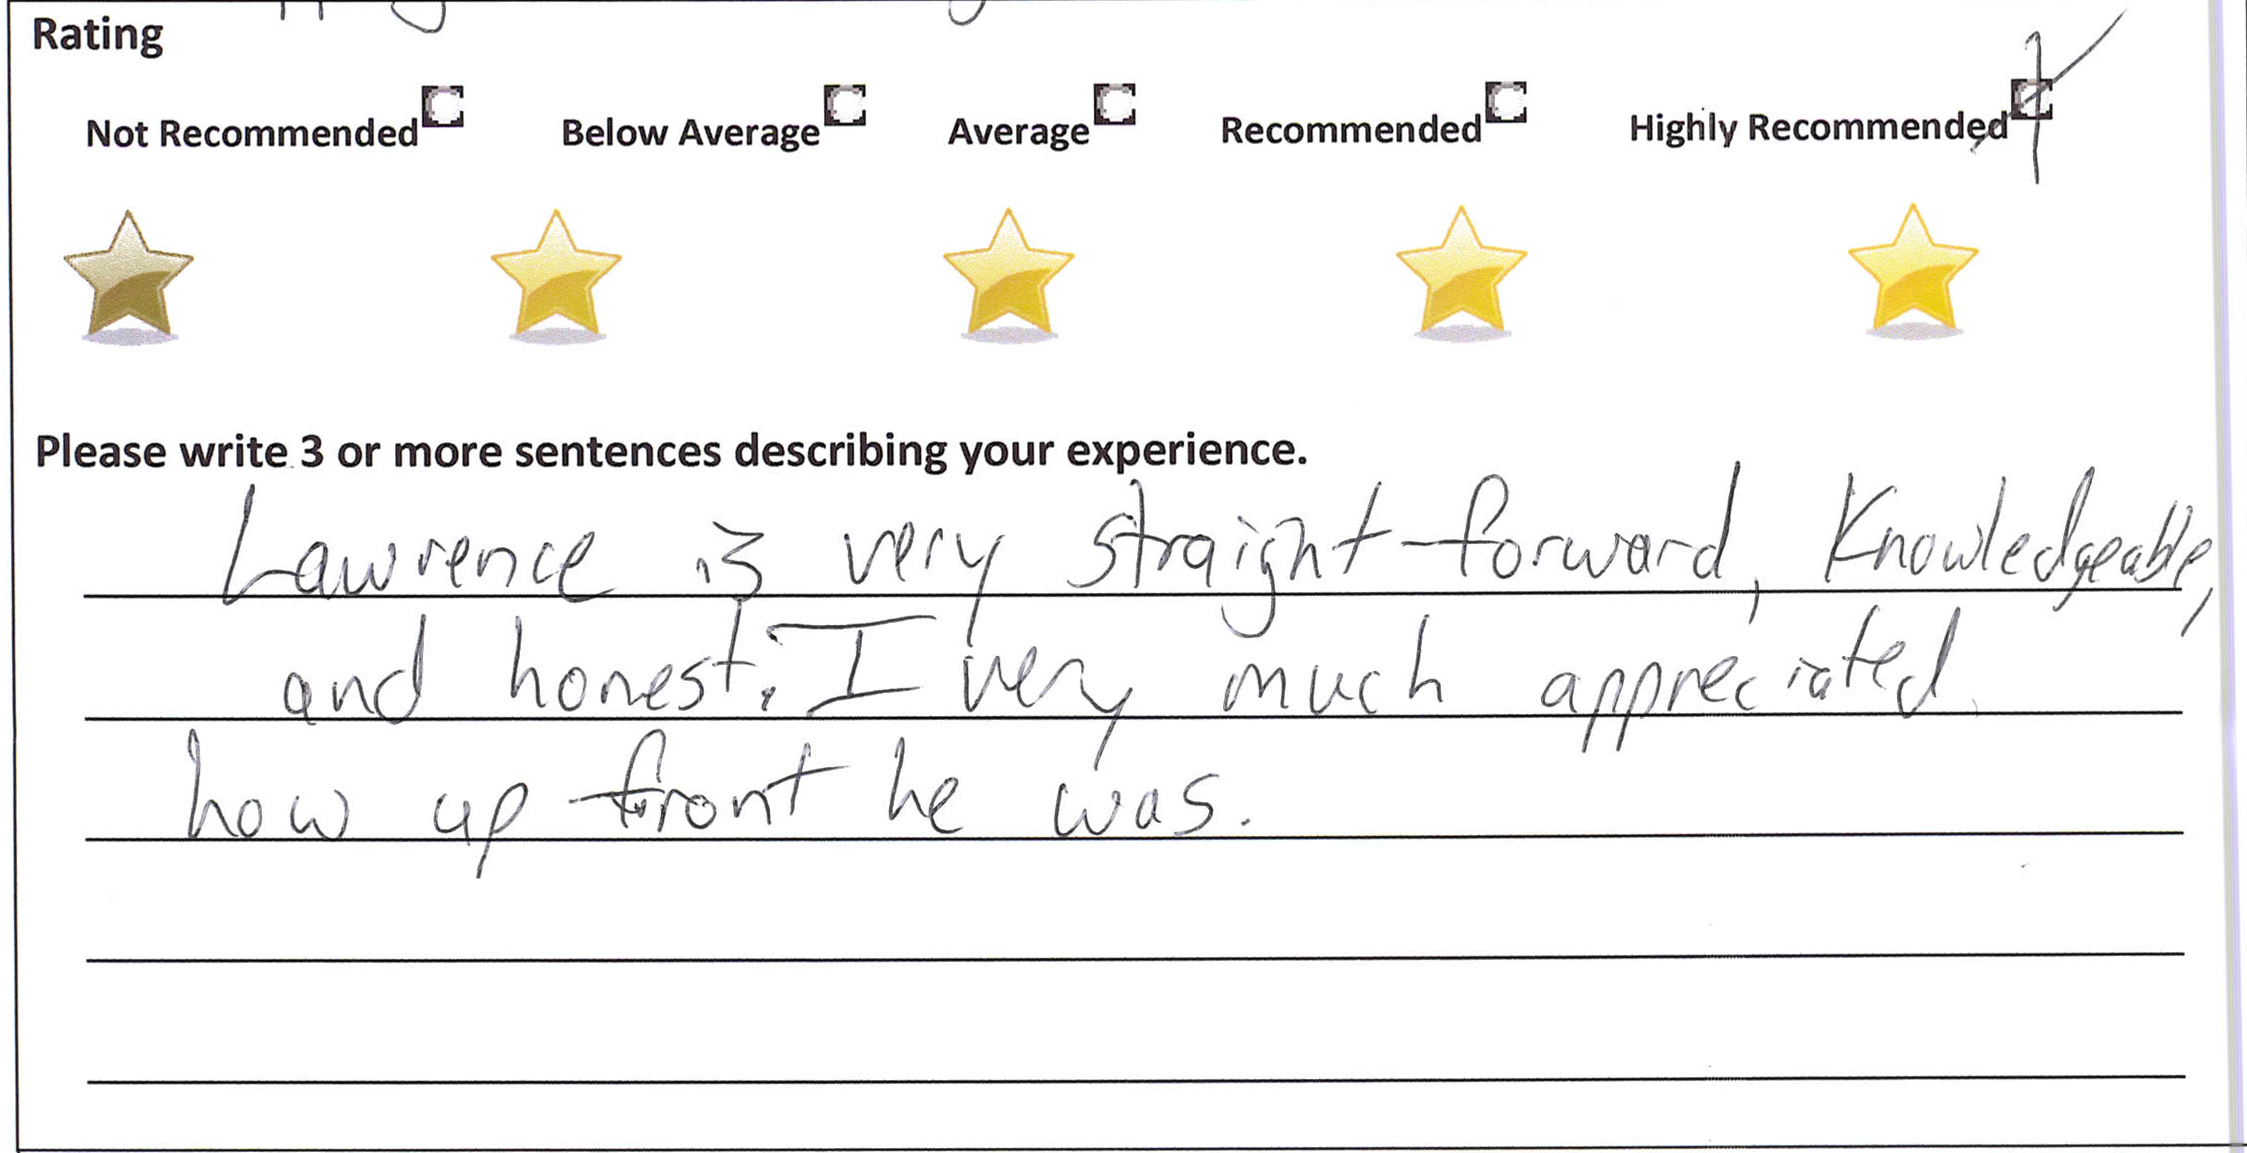 Rating
Not Recommended Below Average Average Recommended Highly Recommended
Please write 3 or more sentences describing your experience.
Lawrence is very straight-forward, Knowledgeable,
and honest. I very much appreciated
how up front he was.